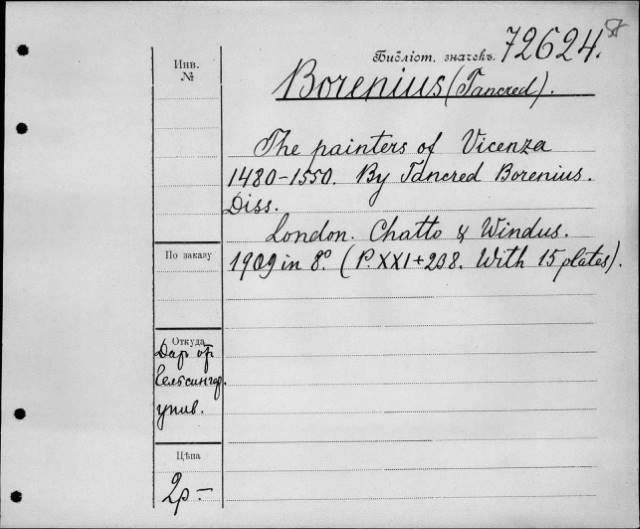 Библіот. значекъ. 72624.
Инв.
№
Borenius (Tancred).
The painters of Vicenza
1480-1550. By Tancred Borenius.
Diss.
London. Chatto & Windus.
По заказу
1909 in 8°. (P. XXI+238. With 15 plates).
Откуда
Дар от
Гельсингф.
унив.
Цѣна
2р-